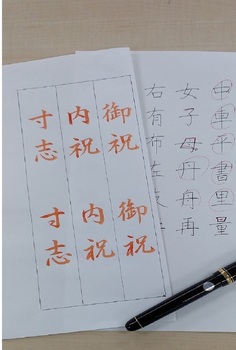 中車平書里量
女子母丹再
右有布
御祝
内祝
寸志
御祝
内祝
寸志